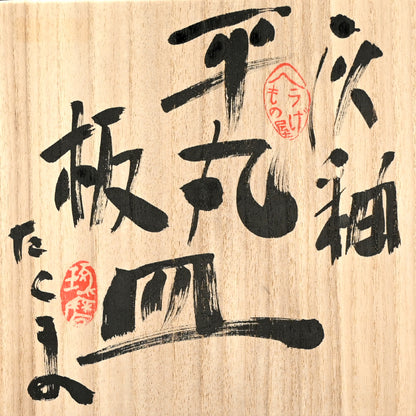 灰釉
へうげ
もの屋
平丸皿
板
琢磨
たくまの